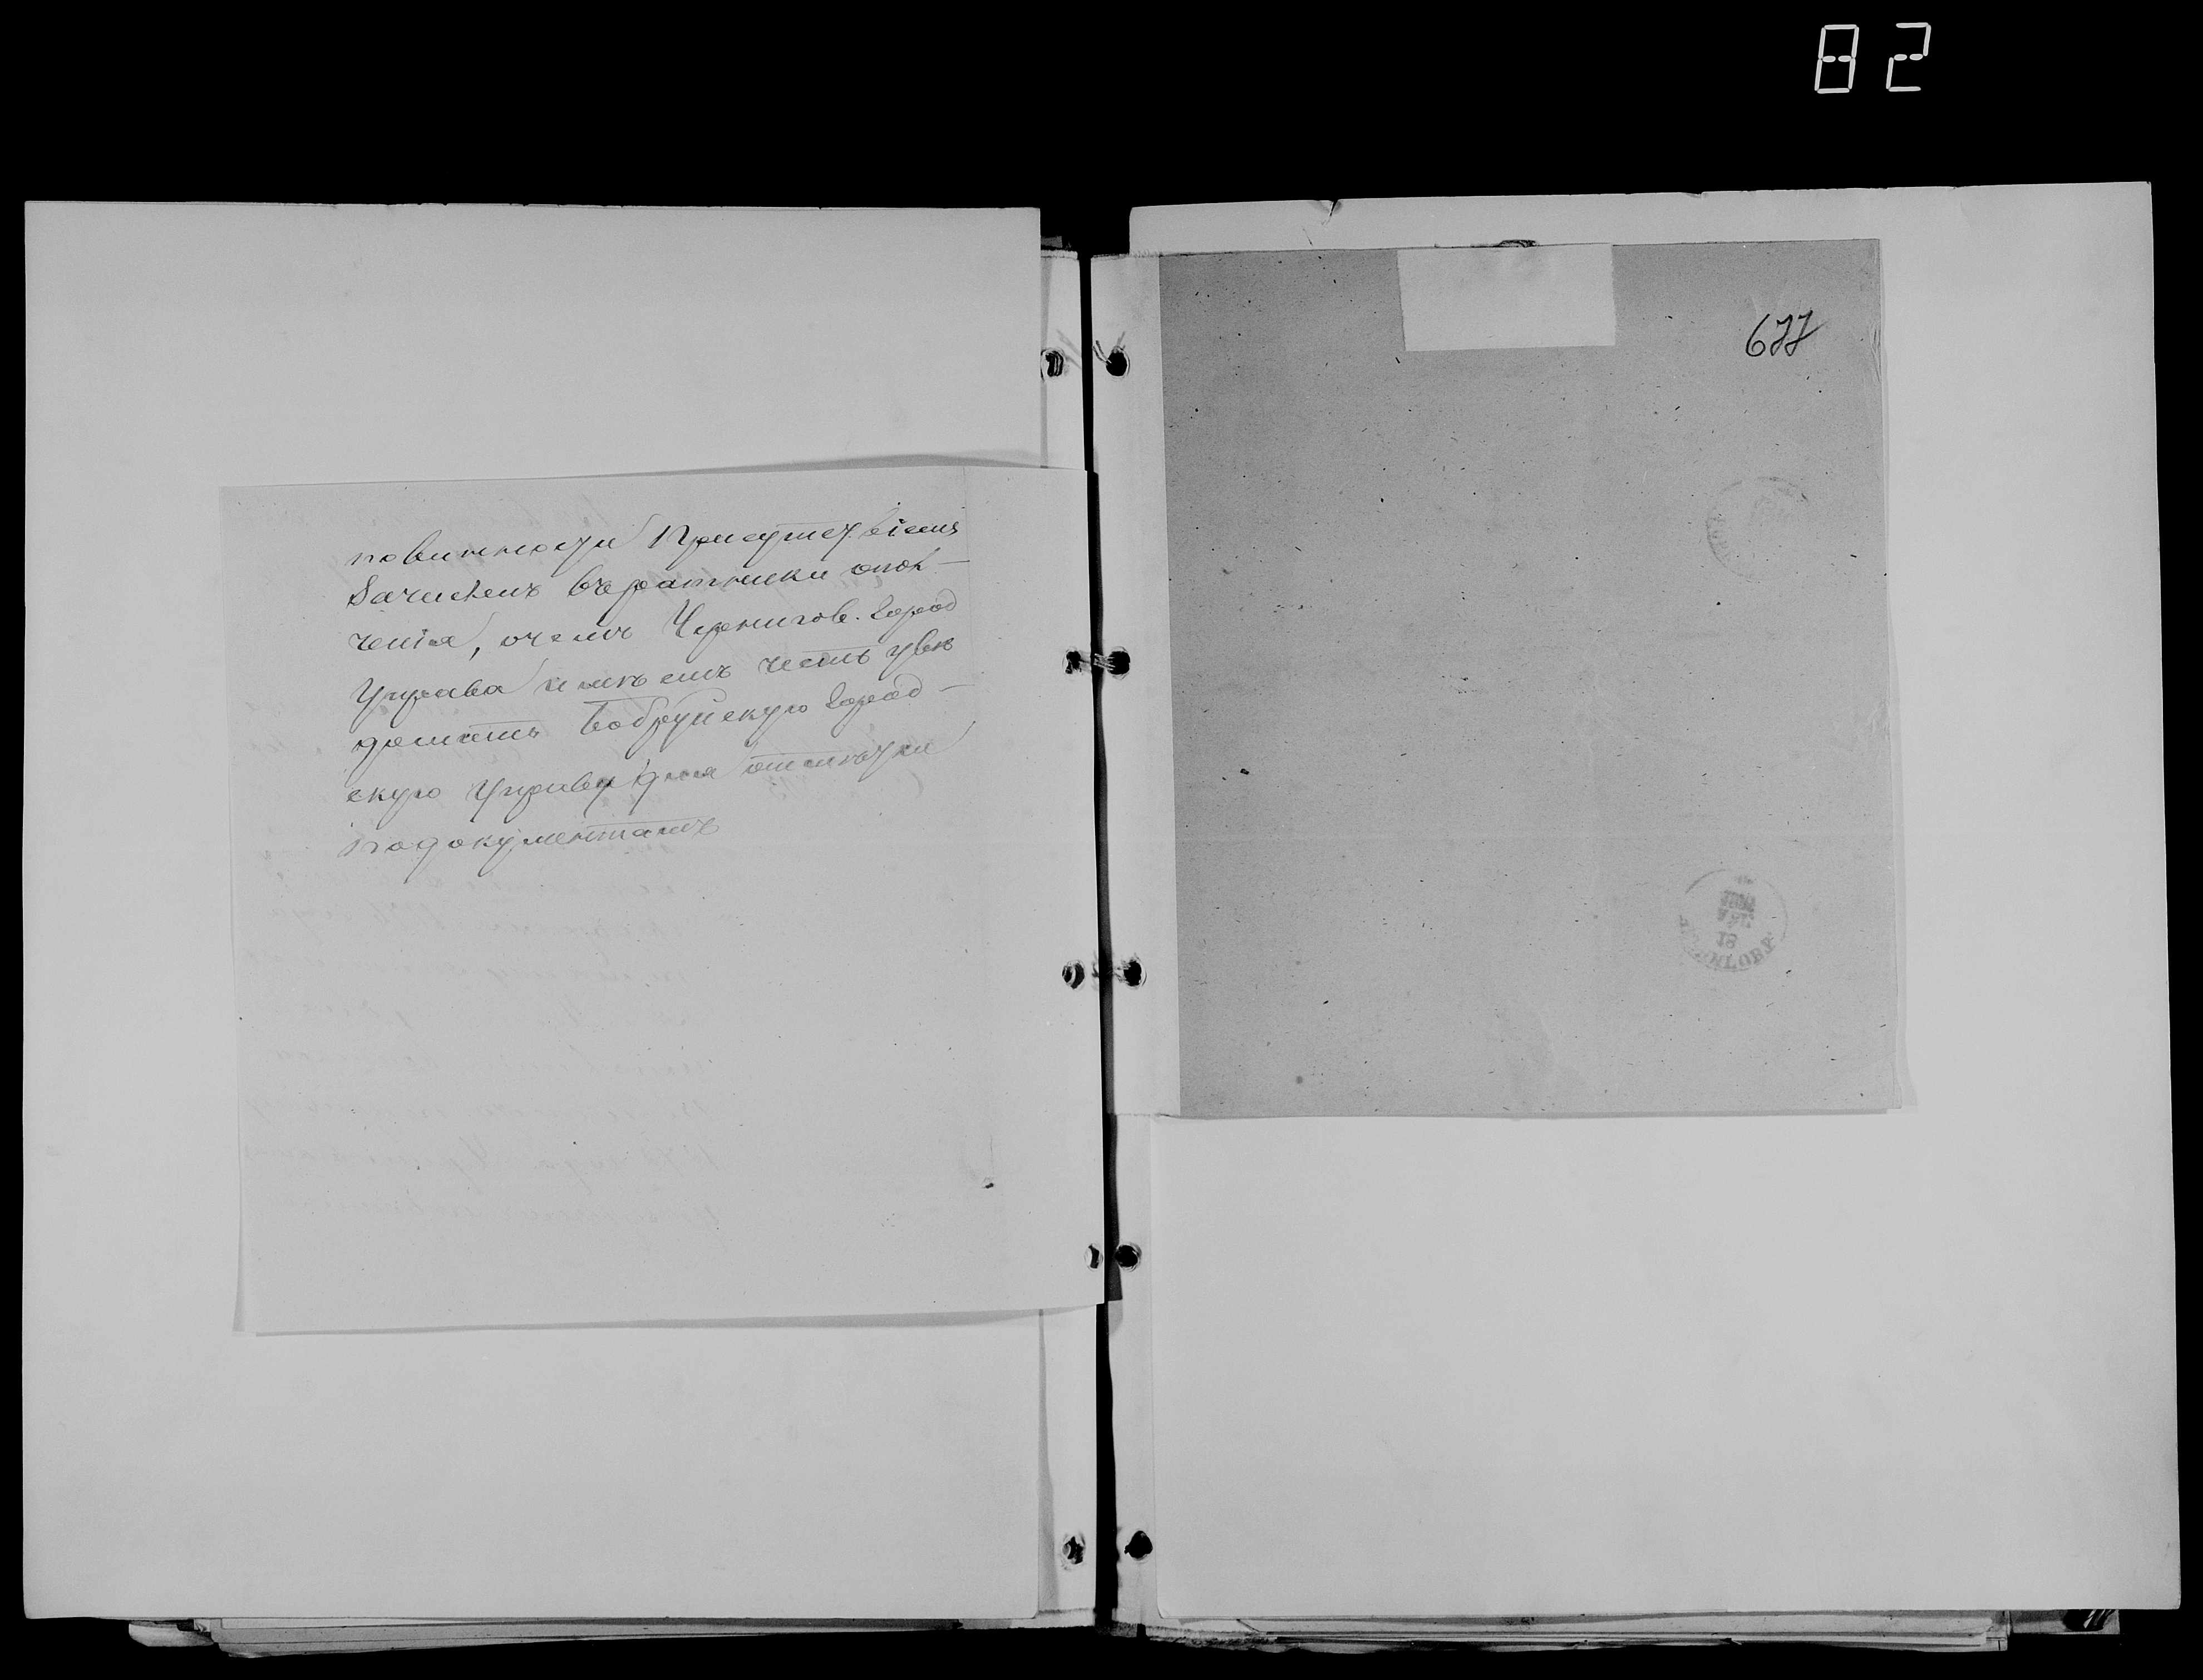 82
повинности Присутствiемъ
Зачисленъ въ ратники опол-
ченiя, о чемъ Чернигов. Город
Управа имѣетъ честь увѣ
домить Бобруйскую Город-
скую Управу для отмѣтки
по документамъ
677
18